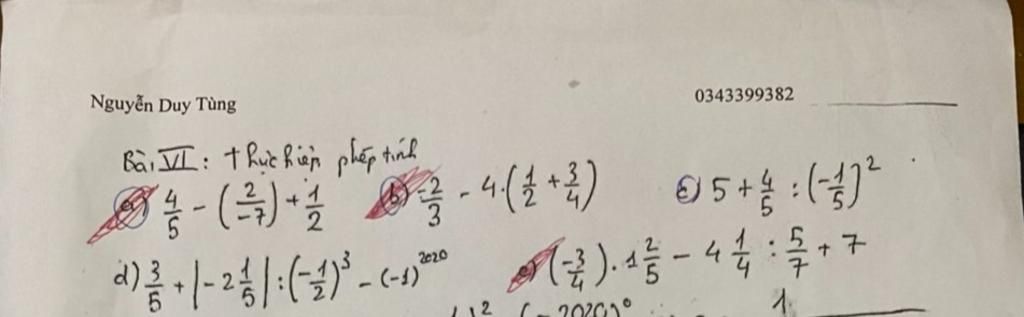 Nguyễn Duy Tùng 0343399382
Bài VI: thực hiện phép tính
a) 4/5 - (2/-7) + 1/2 b) -2/3 - 4.(1/2 + 3/4) c) 5 + 4/5 : (-1/5)²
d) 3/5 + |-2 1/5| : (-1/2)³ - (-1)²⁰²⁰ e) (-3/4) . 1 2/5 - 4 1/4 : 5/7 + 7
(-2020)⁰ 1